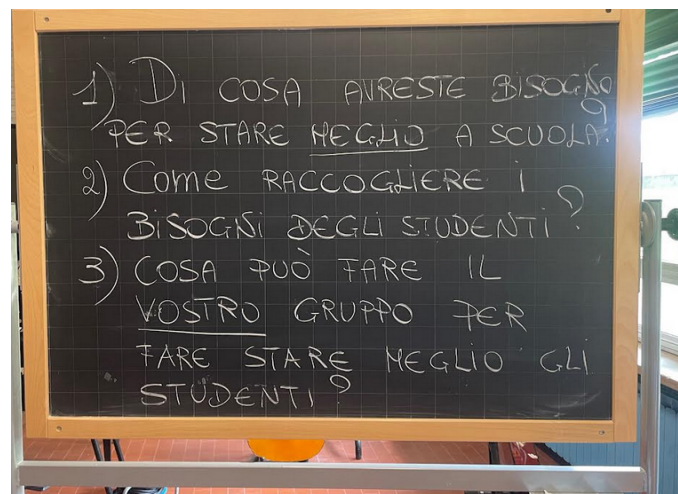 1) Di COSA AVRESTE BISOGNO
PER STARE MEGLIO A SCUOLA?
2) Come RACCOGLIERE i
BiSOGNi DEGLi STUDENTi?
3) COSA PUÒ FARE IL
VOSTRO GRUPPO PER
FARE STARE MEGLIO GLi
STUDENTi?